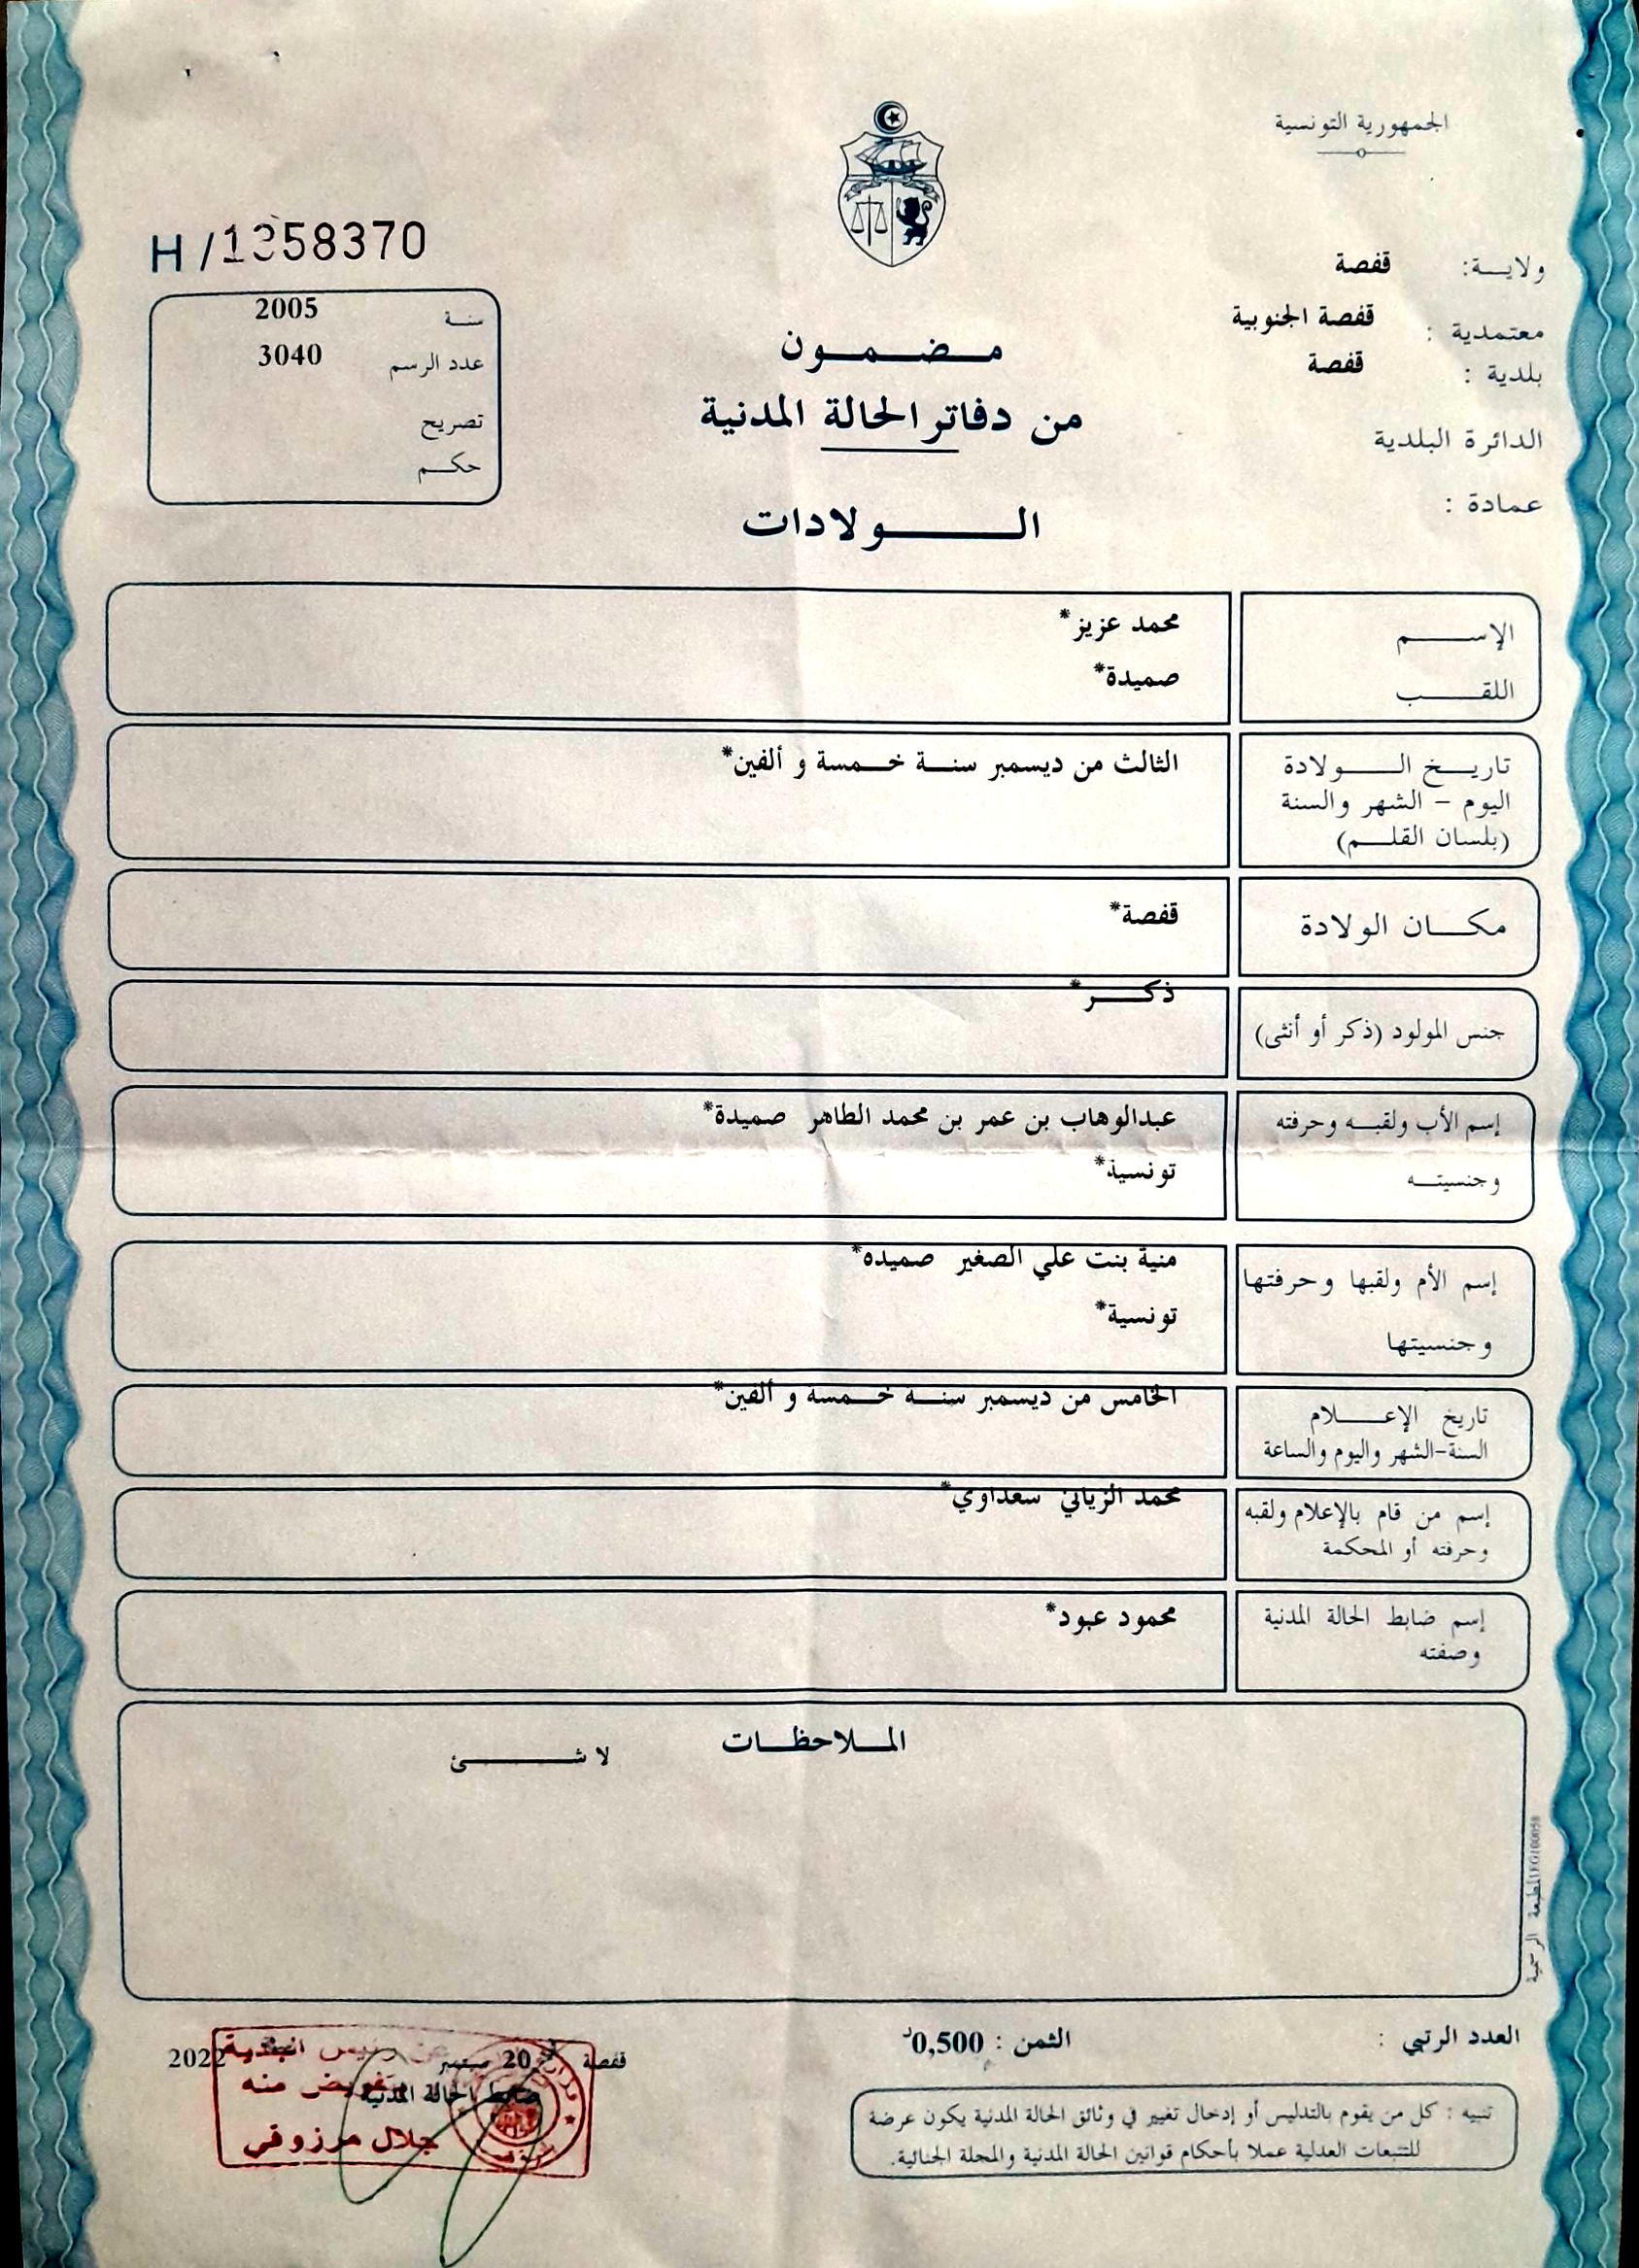 الجمهورية التونسية
H/1358370
ولايــة: قفصة
معتمدية : قفصة الجنوبية
بلدية : قفصة
الدائرة البلدية
عمادة :
سنة 2005
عدد الرسم 3040
تصريح
حكم
مضمون
من دفاتر الحالة المدنية
الولادات
الإسم محمد عزيز*
اللقب صميدة*
تاريخ الولادة الثالث من ديسمبر سنة خمسة و ألفين*
اليوم - الشهر والسنة
(بلسان القلم)
مكان الولادة قفصة*
جنس المولود (ذكر أو أنثى) ذكر*
إسم الأب ولقبه وحرفته عبدالوهاب بن عمر بن محمد الطاهر صميدة*
وجنسيته تونسية*
إسم الأم ولقبها وحرفتها منية بنت علي الصغير صميده*
وجنسيتها تونسية*
تاريخ الإعلام الخامس من ديسمبر سنة خمسة و ألفين*
السنة-الشهر واليوم والساعة
إسم من قام بالإعلام ولقبه محمد الزياني سعداوي*
وحرفته أو المحكمة
إسم ضابط الحالة المدنية محمود عبود*
وصفته
الملاحظات
لا شئ
المطبعة الرسمية
العدد الرتبي :
الثمن : 0,500د
قفصة 20 سبتمبر 2022
ضابط الحالة المدنية
عن رئيس البلدية
بتفويض منه
جلال مرزوقي
تنبيه : كل من يقوم بالتدليس أو إدخال تغيير في وثائق الحالة المدنية يكون عرضة
للتتبعات العدلية عملا بأحكام قوانين الحالة المدنية والمجلة الجنائية.